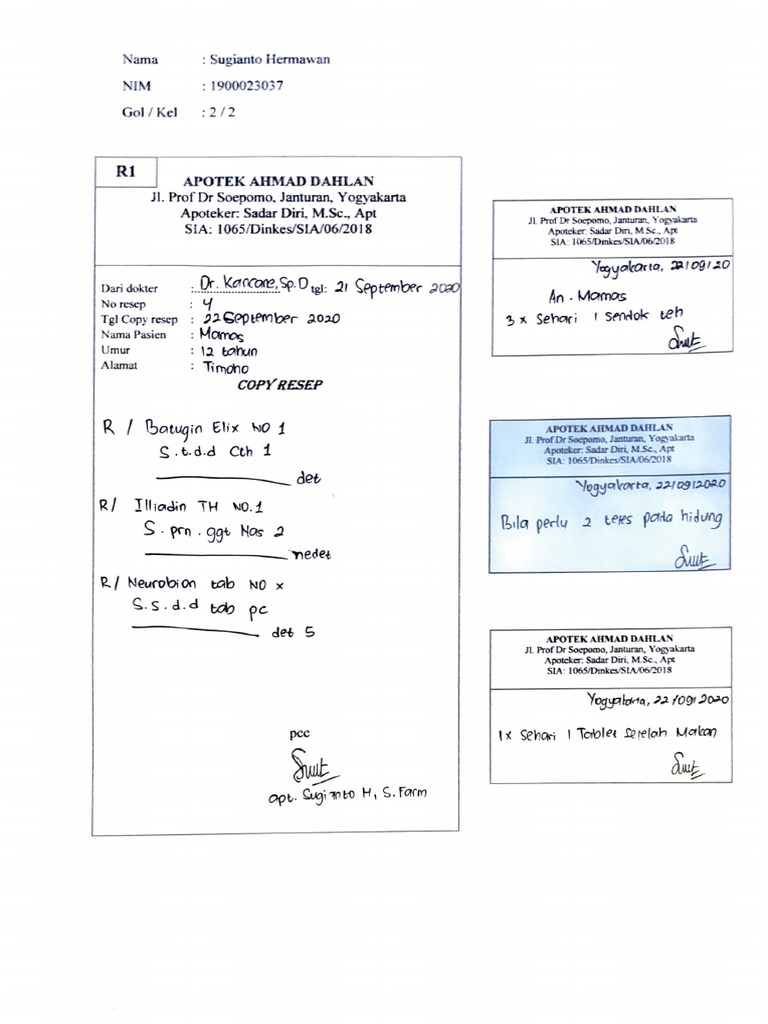 Nama : Sugianto Hermawan
NIM : 1900023037
Gol / Kel : 2 / 2
R1
APOTEK AHMAD DAHLAN
Jl. Prof Dr Soepomo, Janturan, Yogyakarta
Apoteker: Sadar Diri, M.Sc., Apt
SIA: 1065/Dinkes/SIA/06/2018
Dari dokter : Dr. Kancane, Sp.D tgl: 21 September 2020
No resep : 4
Tgl Copy resep : 22 September 2020
Nama Pasien : Mamas
Umur : 12 tahun
Alamat : Timoho
COPY RESEP
R / Batugin Elix NO 1
S.t.d.d Cth 1
det
R/ Illiadin TH NO.1
S. prn. ggt Nas 2
nedet
R/ Neurobion tab NO x
S.s.d.d tab pc
det 5
pcc
apt. Sugianto H, S.Farm
APOTEK AHMAD DAHLAN
Jl. Prof Dr Soepomo, Janturan, Yogyakarta
Apoteker: Sadar Diri, M.Sc., Apt
SIA: 1065/Dinkes/SIA/06/2018
Yogyakarta, 22/09/20
An. Mamas
3 x Sehari 1 Sendok teh
APOTEK AHMAD DAHLAN
Jl. Prof Dr Soepomo, Janturan, Yogyakarta
Apoteker: Sadar Diri, M.Sc., Apt
SIA: 1065/Dinkes/SIA/06/2018
Yogyakarta, 22/09/2020
Bila perlu 2 tetes pada hidung
APOTEK AHMAD DAHLAN
Jl. Prof Dr Soepomo, Janturan, Yogyakarta
Apoteker: Sadar Diri, M.Sc., Apt
SIA: 1065/Dinkes/SIA/06/2018
Yogyakarta, 22/09/2020
1x Sehari 1 Tablet Setelah Makan